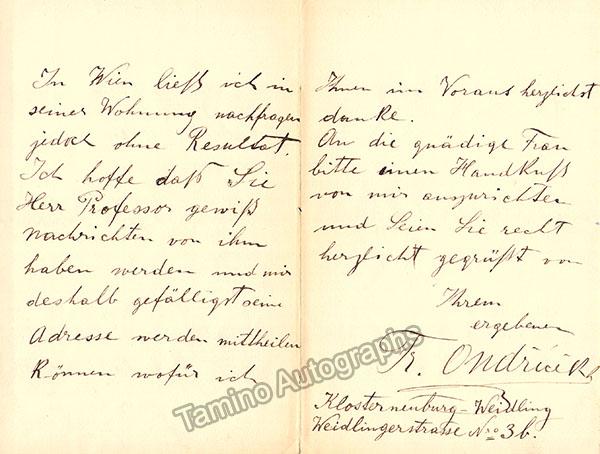 In Wien ließ ich in
seiner Wohnung nachfragen
jedoch ohne Resultat.
Ich hoffe daß Sie
Herr Professor gewiß
Nachrichten von ihm
haben werden und mir
deshalb gefälligst seine
Adresse werden mittheilen
Können wofür ich
Ihnen im Voraus herzlichst
danke.
An die gnädige Frau
bitte einen Handkuß
von mir auszurichten
und Seien Sie recht
herzlichst gegrüßt von
Ihrem
ergebenen
Fr. Ondříček
Klosterneuburg-Weidling
Weidlingerstrasse No 3b.
Tamino Autographs